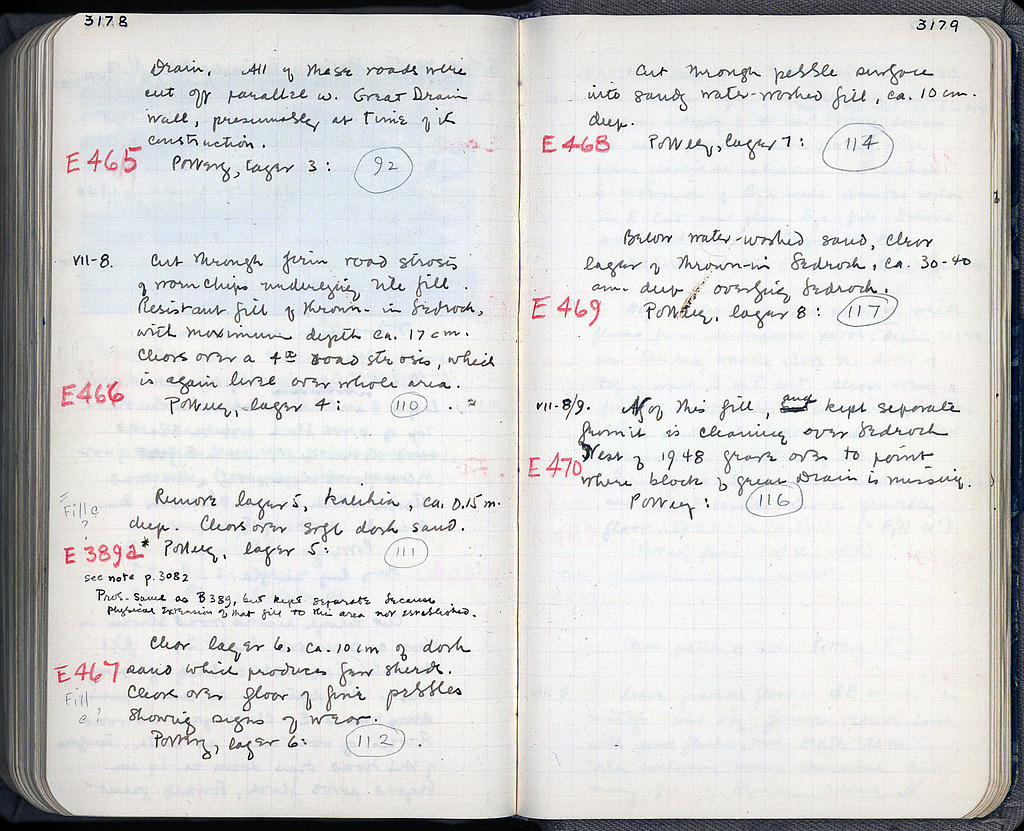 3178
Drain. All of these roads were
cut off parallel w. Great Drain
wall, presumably at time of its
construction.
E 465 Pottery, layer 3: 92
VII-8. Cut through firm road strosis
of worn chips underlying tile fill.
Resistant fill of thrown-in bedrock,
with maximum depth ca. 17 cm.
Clears over a 4th road strosis, which
is again level over whole area.
E466 Pottery, layer 4: 110
Remove layer 5, kalchia, ca. 0.15 m.
Fill c
?
deep. Clears over soft dark sand.
E 389a* Pottery, layer 5: 111
see note p. 3082
Prob. same as B 389, but kept separate because
physical extension of that fill to this area not established.
Clear layer 6, ca. 10 cm of dark
E 467 sand which produces few sherds.
Fill
c?
Clears over floor of fine pebbles
showing signs of wear.
Pottery, layer 6: 112
3179
Cut through pebble surface
into sandy water-washed fill, ca. 10 cm.
deep.
E 468 Pottery, layer 7: 114
Below water-washed sand, clear
layer of thrown-in bedrock, ca. 30-40
cm. deep overlying bedrock.
E 469 Pottery, layer 8: 117
VII-8/9. of this fill, and kept separate
from it is cleaning over bedrock
E 470 West of 1948 grave over to point
where block of great Drain is missing.
Pottery: 116